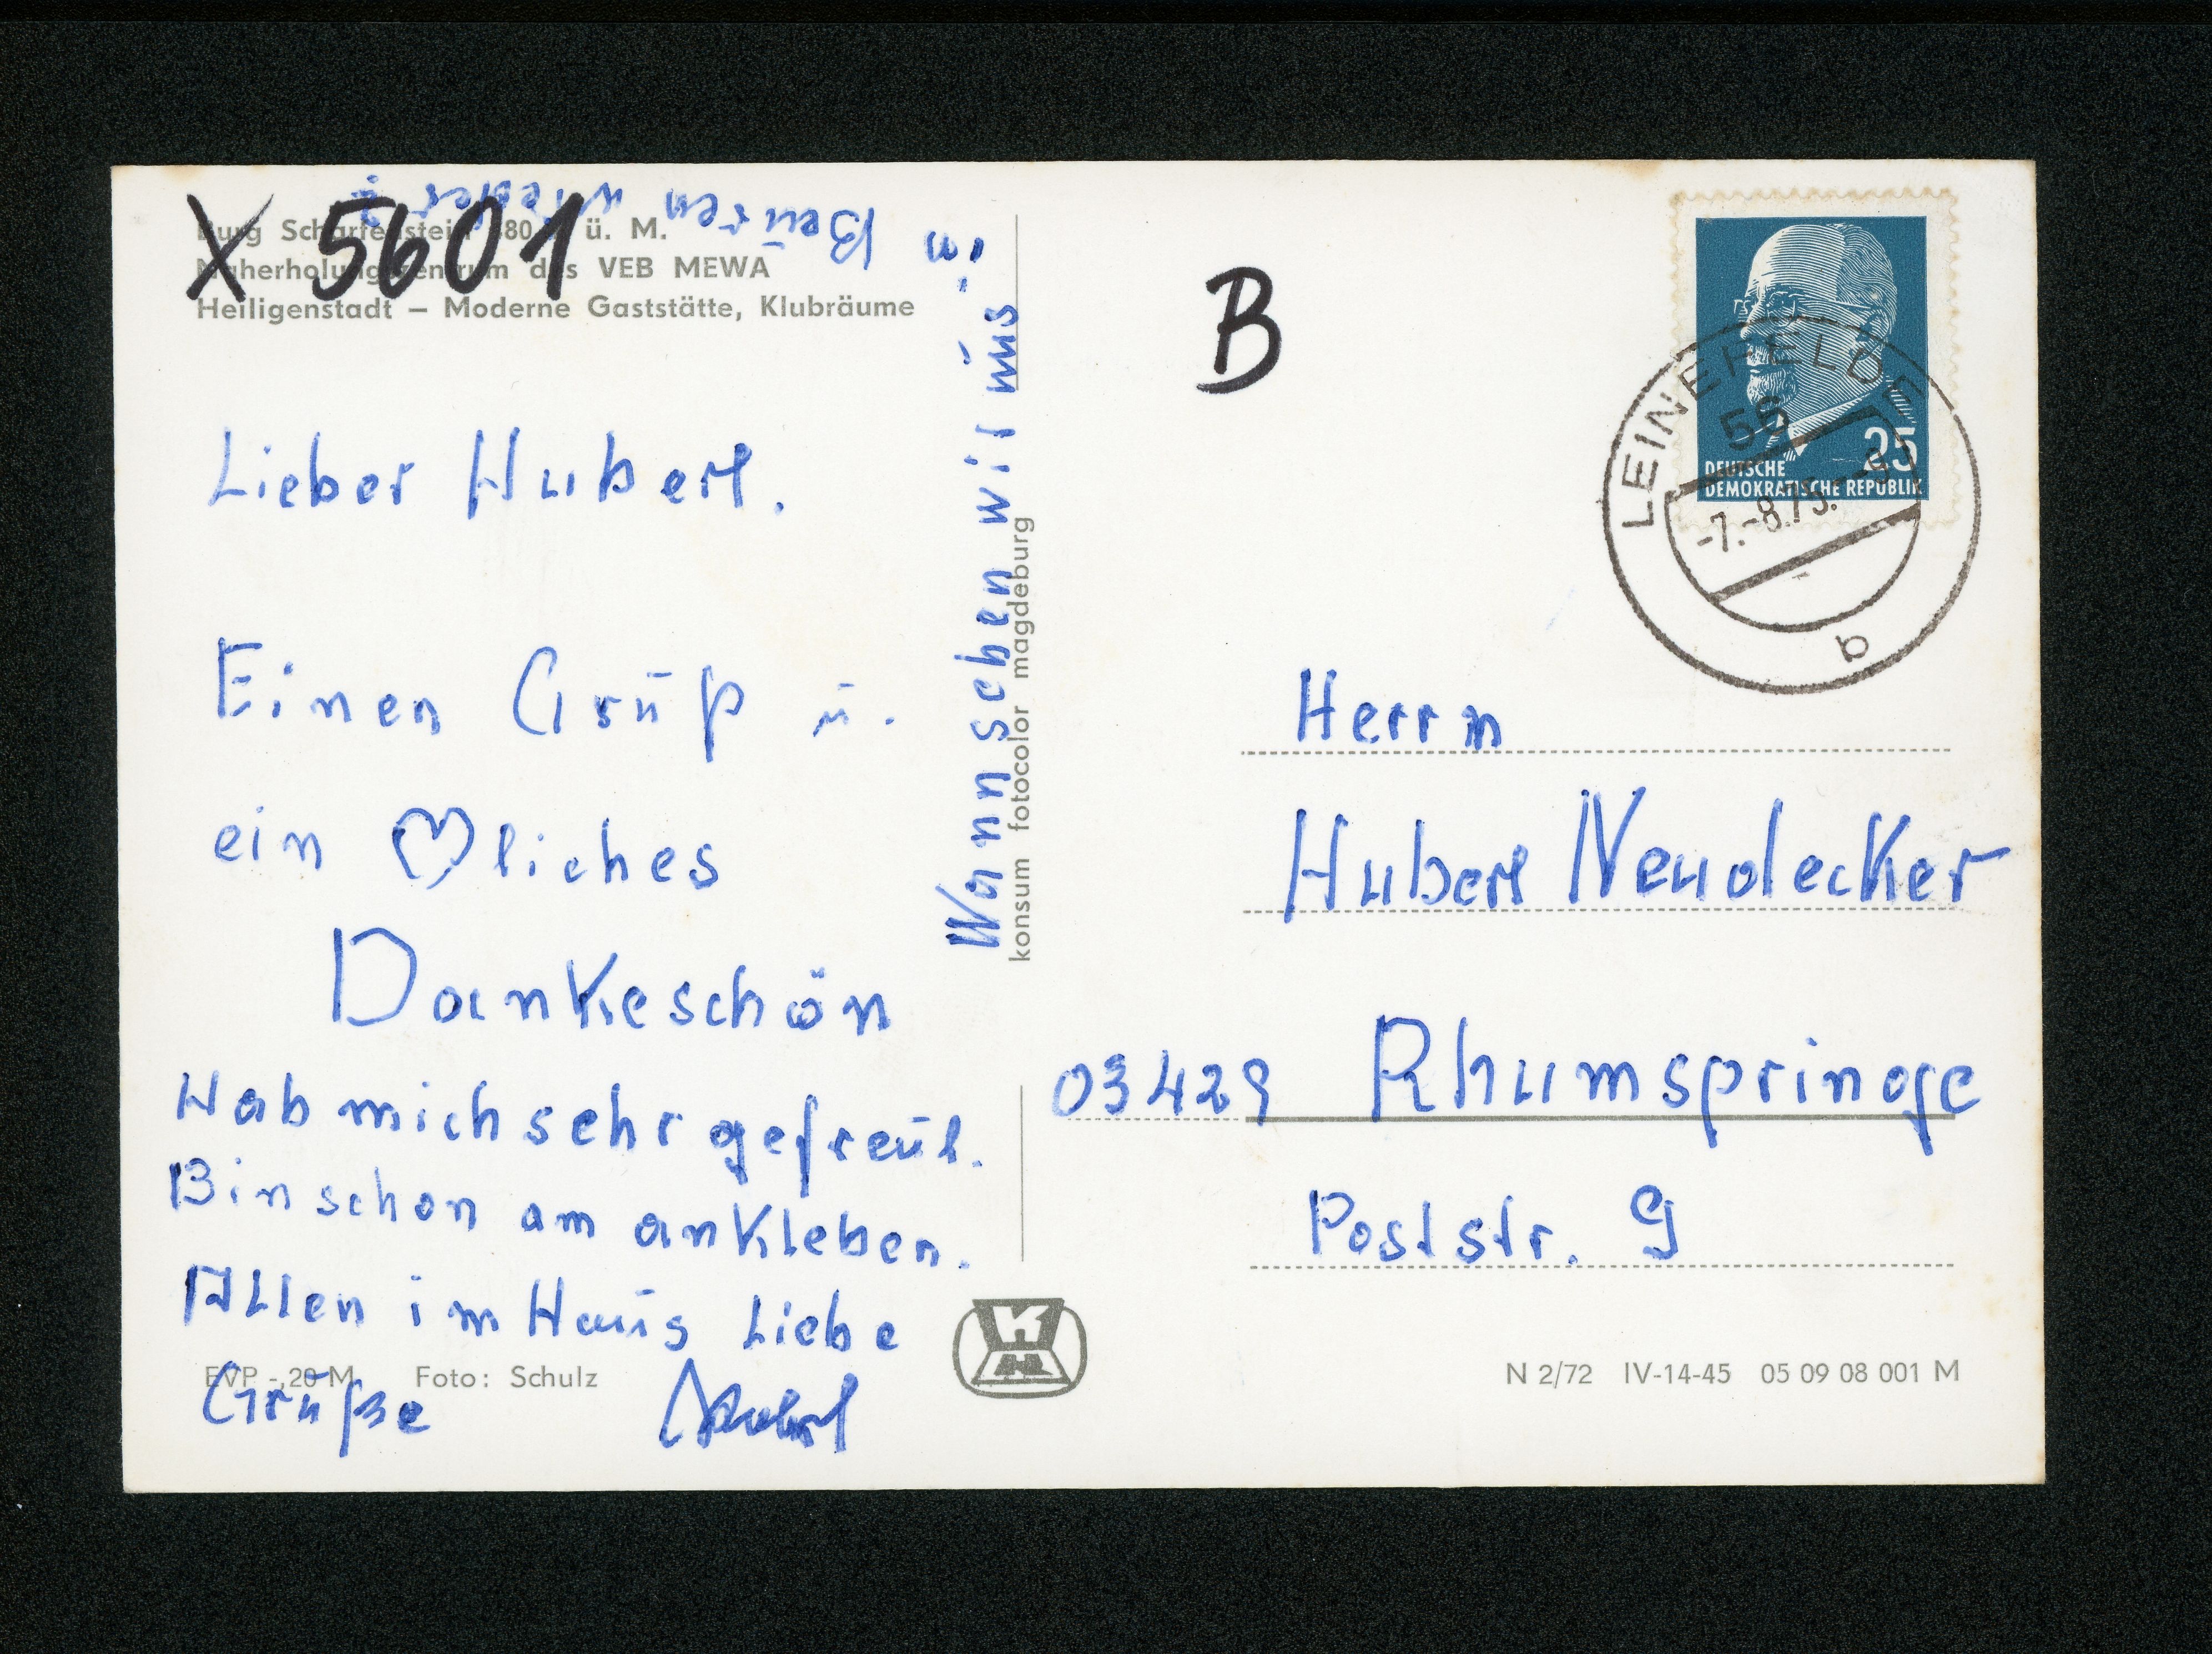 X 5601
Burg Scharfenstein 480 ü. M.
Naherholungszentrum des VEB MEWA
Heiligenstadt – Moderne Gaststätte, Klubräume
Lieber Hubert.
Einen Gruß u.
ein ♡liches
Dankeschön
Hab mich sehr gefreut.
Bin schon am ankleben.
Allen im Haus Liebe
Grüße
Wann sehen wir uns
in Beuren wieder?
EVP -,20 M Foto: Schulz
konsum fotocolor magdeburg
B
DEUTSCHE
DEMOKRATISCHE REPUBLIK
25
LEINEFELDE
56
-7.-8.75.
b
Herrn
Hubert Neudecker
03429 Rhumspringe
Poststr. 9
N 2/72 IV-14-45 05 09 08 001 M